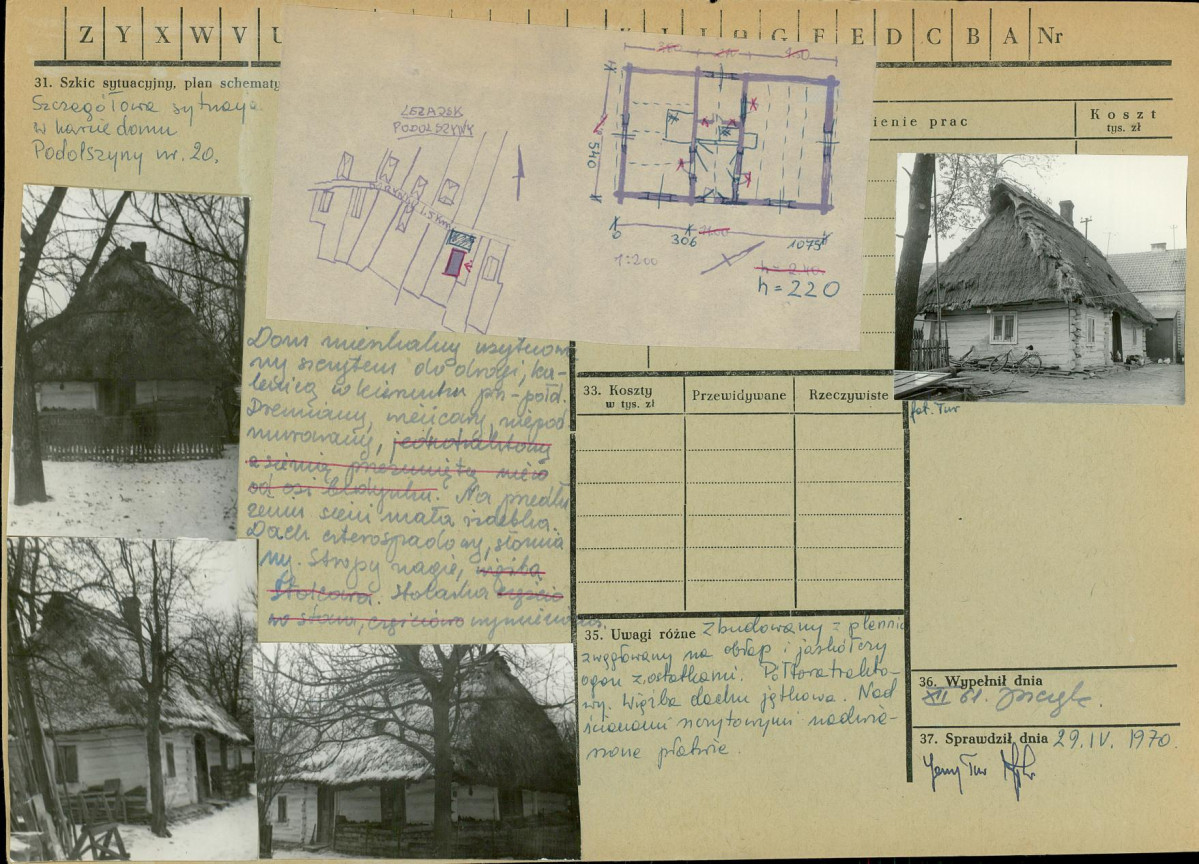 Z Y X W V U
K J I H G F E D C B A Nr
31. Szkic sytuacyjny, plan schematy
Szczegółowa sytuacja
w karcie domu
Podolszyny nr. 20.
LEŻAJSK
PODOLSZYNY
1.5 km
380 210 450
540
0 306 1100 1075
1:200
h = 240
h = 220
ienie prac
Koszt
tys. zł
fot. Tur
Dom mieszkalny usytuowa
ny szczytem do drogi, ka-
lenicą w kierunku pn-połd.
Drewniany, węgłowany, niepod
murowany, jednotraktowy
z sienią przesuniętą nieco
od osi budynku. Na przedłu
żeniu sieni mała izdebka.
Dach czterospadowy, słomia
ny. Stropy nagie, więźba
stolcowa. Stolarka częścio
wo stara, częściowo wymieniona.
33. Koszty
w tys. zł
Przewidywane
Rzeczywiste
35. Uwagi różne Zbudowany z płennic
zwęgłowany na obłap i jaskółczy
ogon z ostatkami. Półtoratrakto-
wy. Więźba dachu jętkowa. Nad
ścianami szczytowymi nadwie-
szone płatwie.
36. Wypełnił dnia
XII 61.
37. Sprawdził dnia 29.IV. 1970.
Jerzy Tur